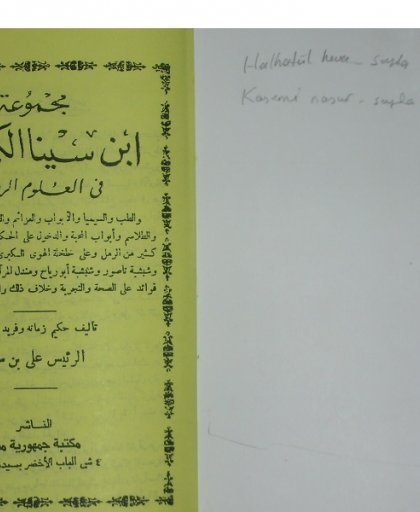 مجموعة
ابن سينا الك
فى العلوم الر
والطب والسيميا والأبواب والعزائم وال
والطلاسم وأبواب المحبة والدخول على الحك
كثير من الرمل وعلى خلخلة الهوى الكبرى
وشبشبة ناصور وشبشبة أبو رياح ومندل المرآ
فوائد على الصحة والتجربة وخلاف ذلك وا
تأليف حكيم زمانه وفريد
الرئيس على بن س
الناشر
مكتبة جمهورية م
٤ ش الباب الأخضر بسيدنا
Halhatül heva -
Kasemi nasur -